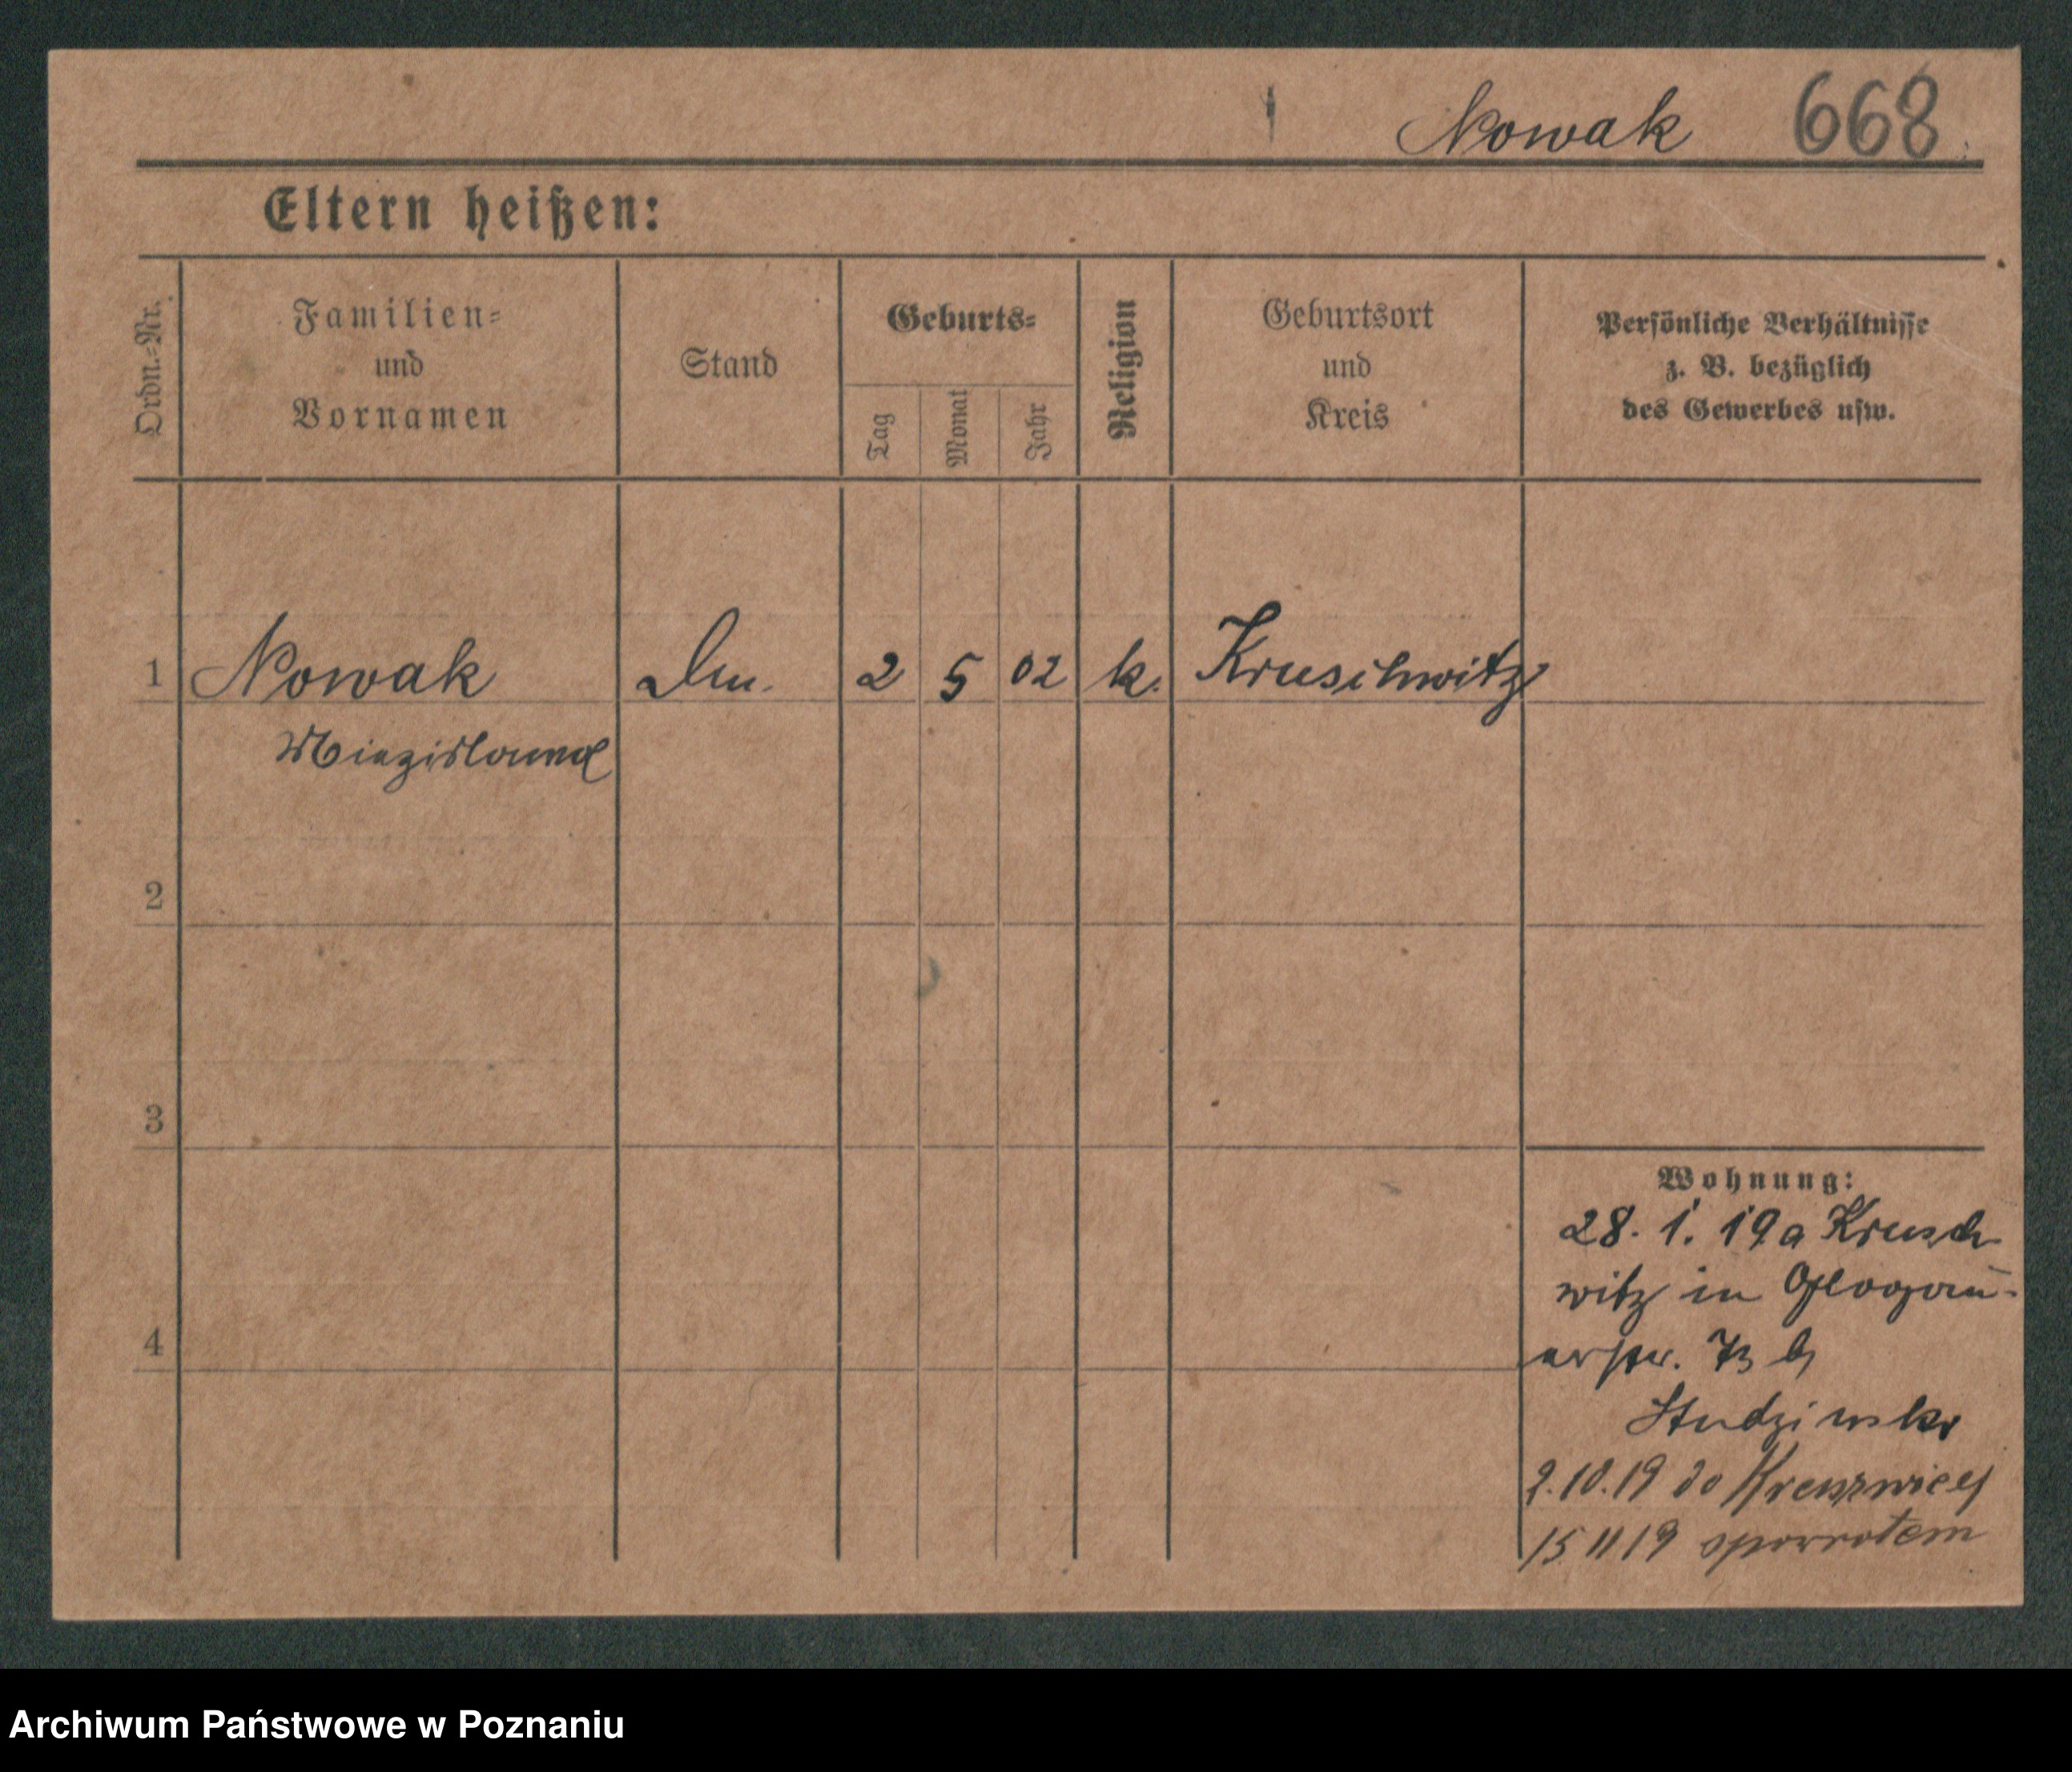 Nowak 668
Eltern heißen:
Ordn.=Nr.
Familien=
und
Vornamen
Stand
Geburts=
Tag
Monat
Jahr
Religion
Geburtsort
und
Kreis
Persönliche Verhältnisse
z. B. bezüglich
des Gewerbes usw.
1 Nowak 2 5 02 k. Kruschwitz
Miezislaus
2
3
4
Wohnung:
28. 1. 19 a Krusch
witz in Glogau-
erstr. 73 b
2.10.19 do Kruszwicy
15 11 19 spowrotem
Archiwum Państwowe w Poznaniu